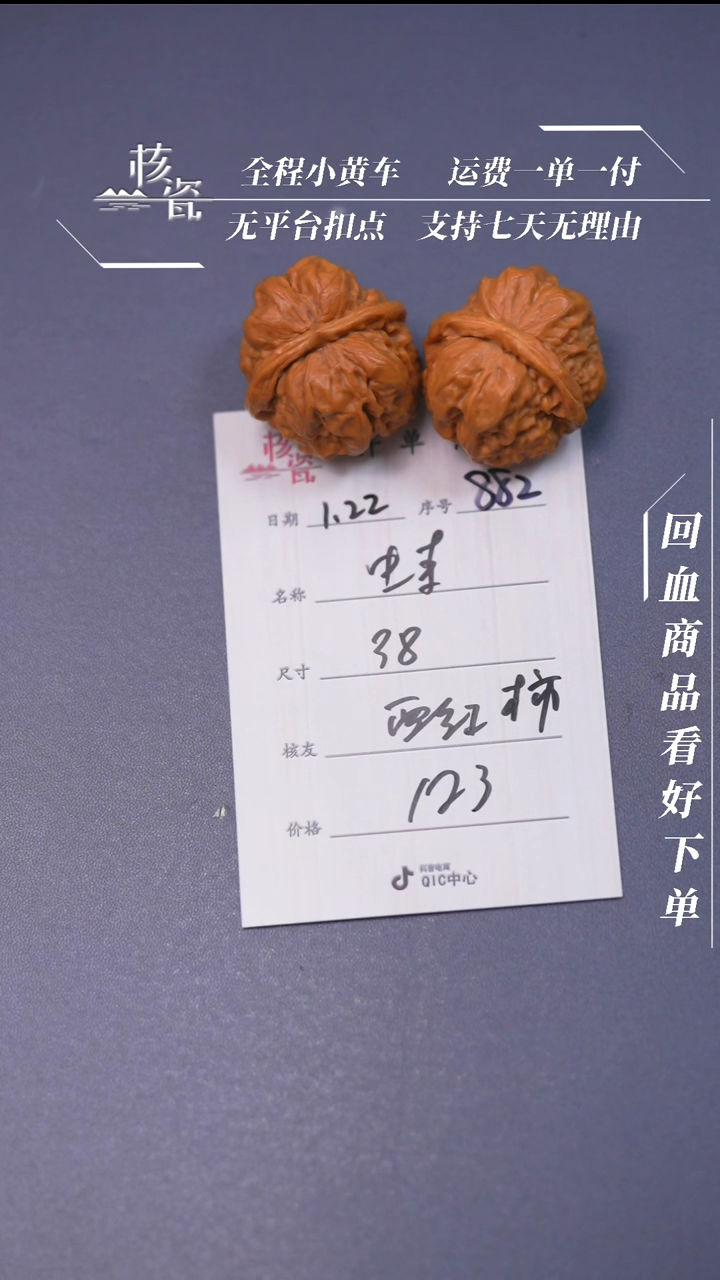 核瓷
全程小黄车 运费一单一付
无平台扣点 支持七天无理由
核瓷 单
日期 1.22 序号 882
名称
尺寸 38
核友 西红柿
价格 123
抖音电商
QIC中心
回血商品看好下单